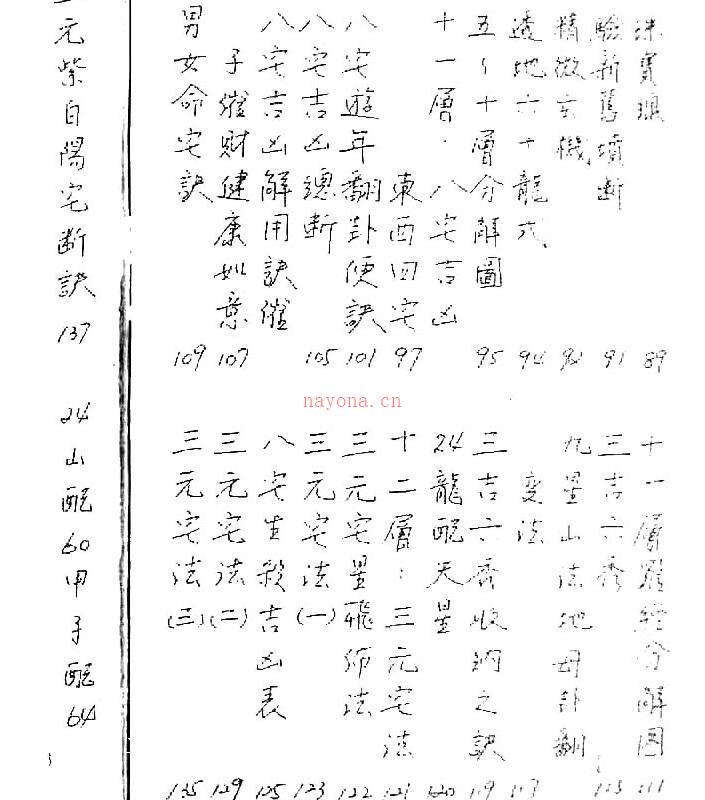 珠寶
驗新舊墳斷 91
精微玄機 92
透地六十龍式 94
五~十層分解圖 95
十一層:八宅吉凶
東西四宅 97
八宅遊年翻卦便訣 101
八宅吉凶總斷 105
八宅吉凶解用訣催
子催財健康如意 107
男女命宅訣 109
十一層羅經分解圖 111
三吉六秀 113
九星山法地母卦翻
變法 117
三吉六秀收納之訣 119
24龍配天星 120
十二層:三元宅法 121
三元宅星飛佈法 122
三元宅法(一) 123
八宅生殺吉凶表 125
三元宅法(二) 129
三元宅法(三) 135
元紫白陽宅斷訣 137
24山配60甲子配64
nayona.cn